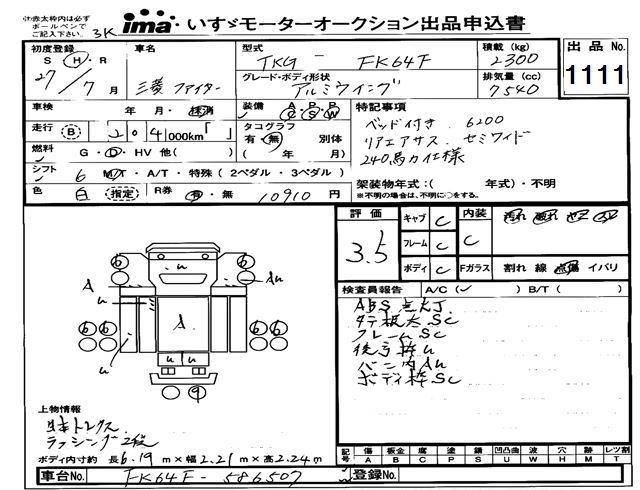 ※赤太枠内は必ず
ボールペンで
ご記入下さい。
3K
ima いすゞモーターオークション出品申込書
初度登録
S H・R
27/7月
車名
三菱 ファイター
型式
TKG - FK64F
積載 (kg)
2300
出品 No.
1111
グレード・ボディ形状
アルミウイング
排気量 (cc)
7540
車検
年 月・抹消
装備 A・P・P
C S W
特記事項
走行 (B) 204,000km
タコグラフ
有・無 別体
( 年 月)
ベッド付き、6200
リアエアサス、セミワイド
240馬力仕様
燃料 G・D・HV 他( )
シフト 6 M/T・A/T・特殊 ( 2ペダル ・ 3ペダル )
架装物年式:( 年式)・不明
※不明の場合は、不明に○をする。
色 白 (指定) R券 有・無 10910 円
評価
3.5
キャブ C
フレーム C
ボディ C
内装
C
Fガラス 割れ 線 点傷 イバリ
検査員報告 A/C( ✓ ) B/T( )
ABS点灯
フレームSC
ボディ枠SC
6 6
A u Au
6 6 A 6 6
u u
u u
9
上物情報
日本トレクス
ラッシング2段
ボディ内寸約 長6.19 m×幅2.21m×高2.24m
記号 傷 A 板金 B 腐 C 塗 P 錆 S 凹凸曲 U 波 W 穴 H 跡 M レツ割 T
車台No. FK64F-586507
登録No.